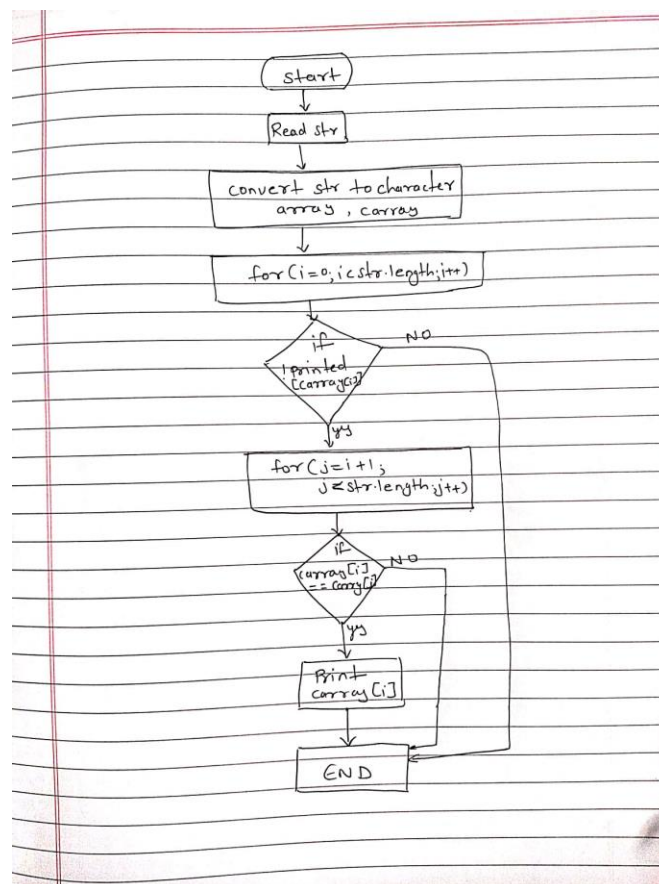 start
Read str
convert str to character
array, carray
for(i=0; i<str.length; i++)
if
!printed
[carray[i]]
NO
yes
for(j=i+1;
j<str.length; j++)
if
carray[i]
NO
yes
Print
carray[i]
END